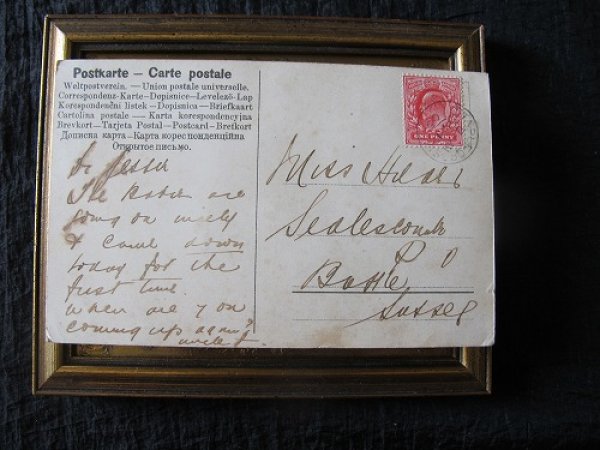 Postkarte – Carte postale
Weltpostverein. – Union postale universelle.
Correspondenz-Karte – Dopisnice – Levelező-Lap
Korespondenční listek – Dopisnica – Briefkaart
Cartolina postale – Karta korespondencyjna
Brevkort – Tarjeta Postal – Postcard – Brefkort
Дописна карта – Карта корреспонденціонная
Открытое письмо.
The are
going on nicely
& came down
today for the
first time
when are you
coming up again?
ONE PENNY
Miss
Sedlescomb
P O
Battle
Sussex